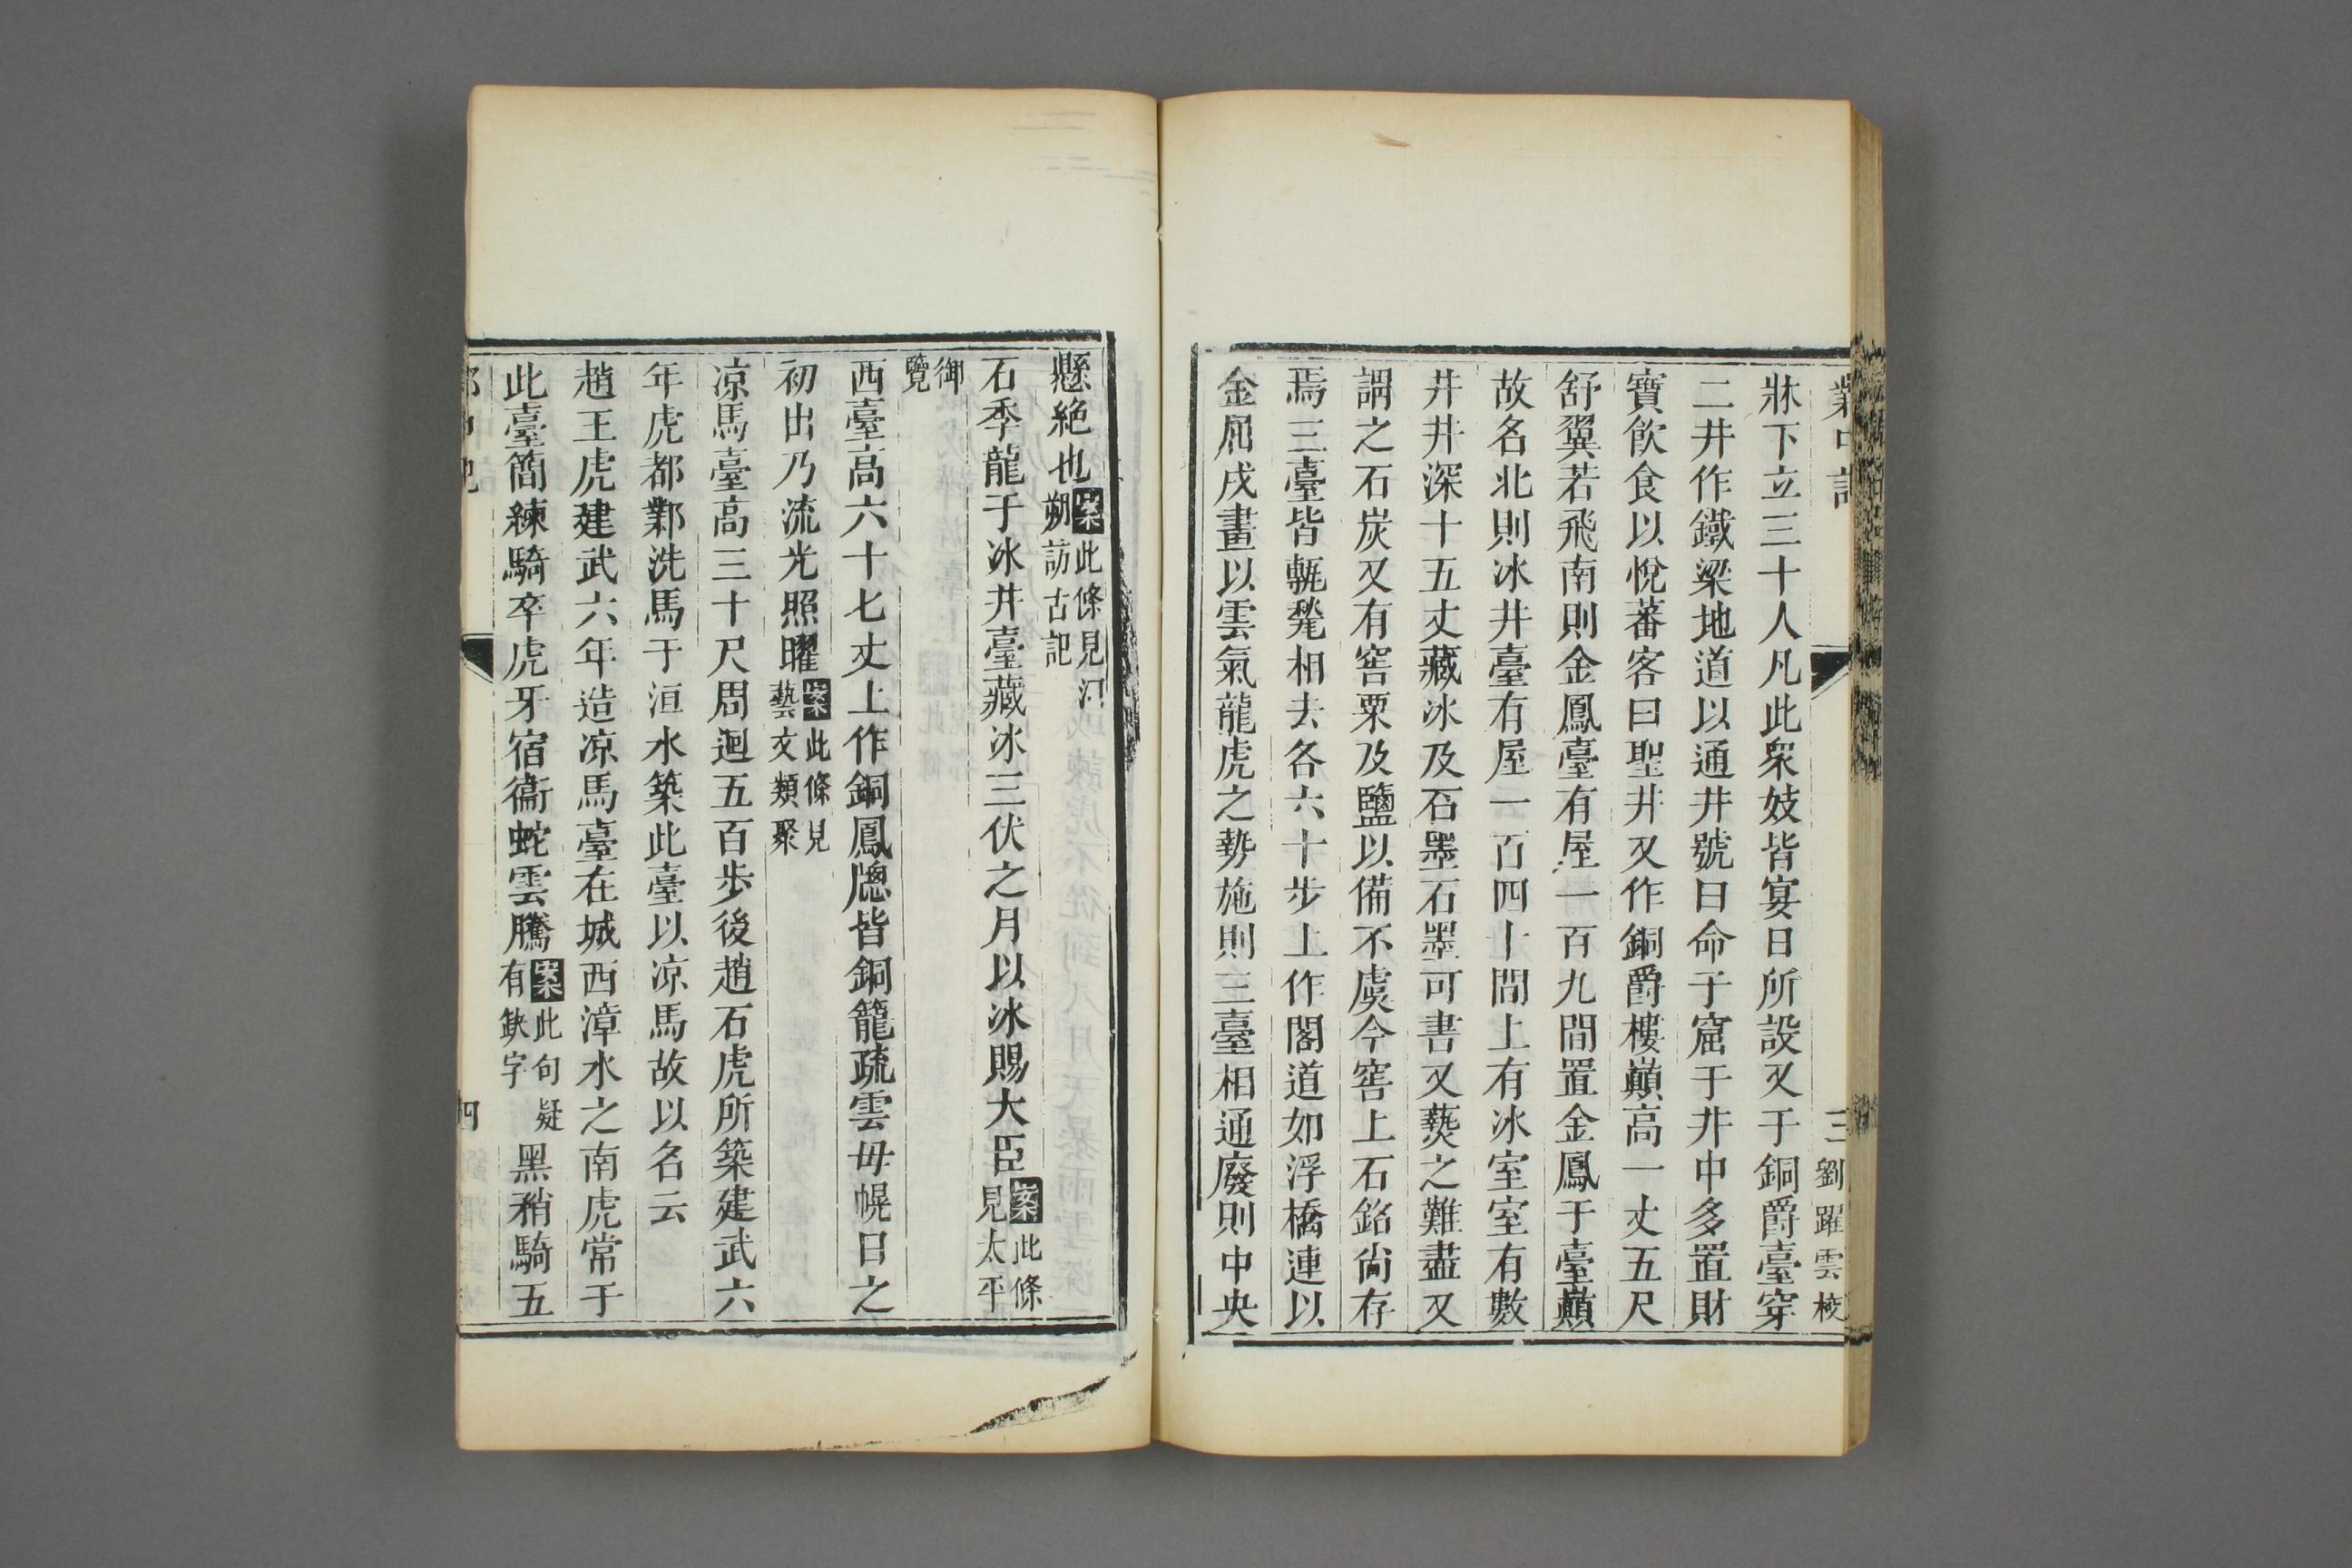 鄴中記
三
劉躍雲校
牀下立三十人凡此衆妓皆宴日所設又于銅爵臺穿
二井作鐵梁地道以通井號曰命子窟于井中多置財
寶飲食以悅蕃客曰聖井又作銅爵樓巔高一丈五尺
舒翼若飛南則金鳳臺有屋一百九間置金鳳于臺巔
故名北則冰井臺有屋一百四十間上有冰室室有數
井井深十五丈藏冰及石墨石墨可書又爇之難盡又
謂之石炭又有窖粟及鹽以備不虞今窖上石銘尙存
焉三臺皆甎甃相去各六十步上作閣道如浮橋連以
金屈戌畫以雲氣龍虎之勢施則三臺相通廢則中央
懸絶也案此條見河
朔訪古記
石季龍于冰井臺藏冰三伏之月以冰賜大臣案此條
見太平
御
覽
西臺高六十七丈上作銅鳳牕皆銅籠疏雲毋幌日之
初出乃流光照曜案此條見
藝文類聚
凉馬臺高三十尺周迴五百步後趙石虎所築建武六
年虎都鄴洗馬于洹水築此臺以凉馬故以名云
趙王虎建武六年造凉馬臺在城西漳水之南虎常于
此臺簡練騎卒虎牙宿衞蛇雲騰案此句疑
有缺字黑矟騎五
鄴中記
四